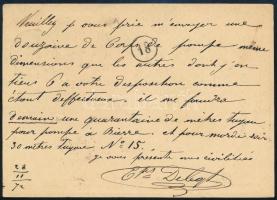 Veuillez je vous prie m'envoyer une
douzaine de Corps de pompe même
dimensions que les autres dont j'en
tiens 6 a votre disposition comme
étant défectueux. il me faudra
demain une quarantaine de mètres tuyau
pour pompe à Bierre. et pour
30 mètres tuyau No 15.
je vous présente mes civilités
18